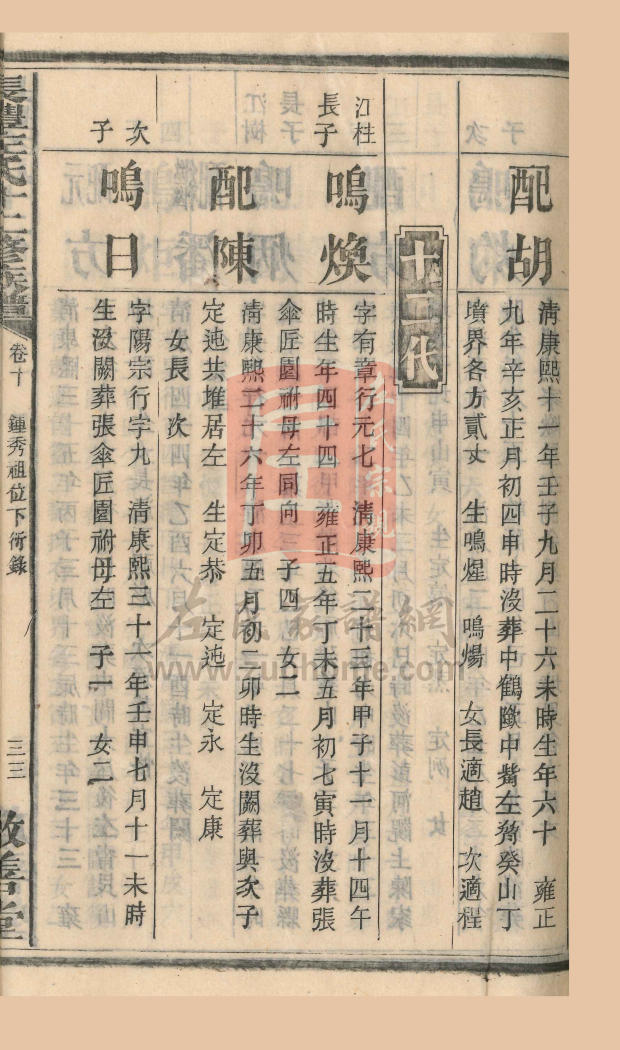 配胡
淸康熙十一年壬子九月二十六未時生年六十 雍正
九年辛亥正月初四申時沒葬中鶴 中 左 癸山丁
墳界各方貳丈 生鳴煋 鳴煬 女長適趙 次適程
十二代
江柱
長子
鳴煥
字有章行元七 淸康熙二十三年甲子十一月十四午
時生年四十四 雍正五年丁未五月初七寅時沒葬張
傘匠園祔母左同向 子四 女二
配陳
淸康熙二十六年丁卯五月初二卯時生沒闕葬與次子
定迆共堆居左 生定恭 定迆 定永 定康
女長 次
次
子
鳴日
字陽宗行字九 淸康熙三十一年壬申七月十一未時
生沒闕葬張傘匠園祔母左 子一 女二
王氏十二修族譜
卷十 鍾秀祖位下衍錄 三三
敦善堂
左氏家譜網
www.zuohome.com